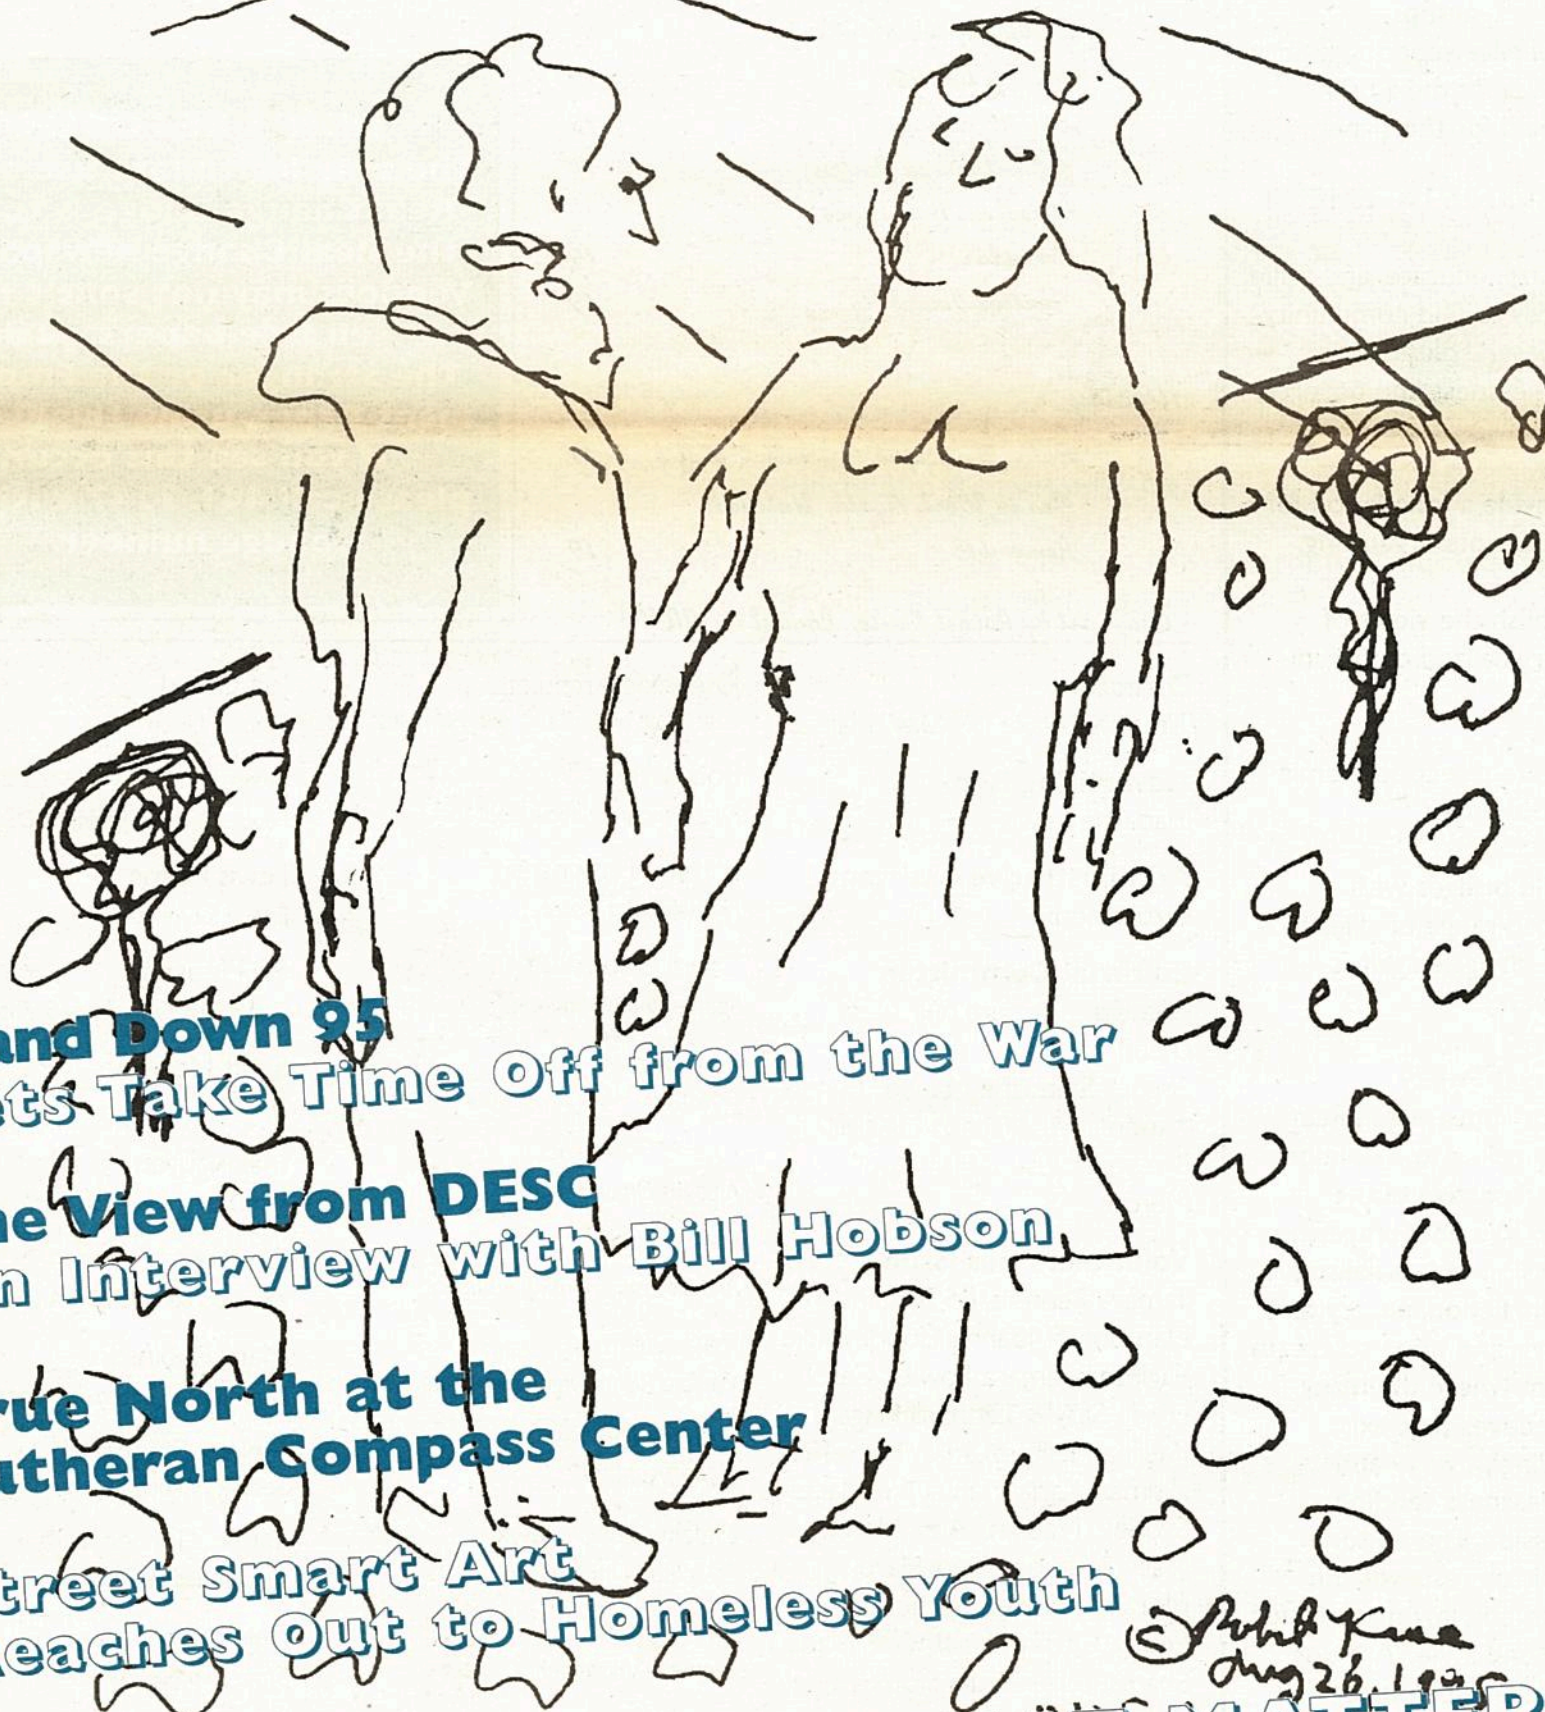 and Down 95
ets Take Time Off from the War
he View from DESC
n Interview with Bill Hobson
rue North at the
utheran Compass Center
treet Smart Art
eaches Out to Homeless Youth
©
Aug 26, 1995
MATTER